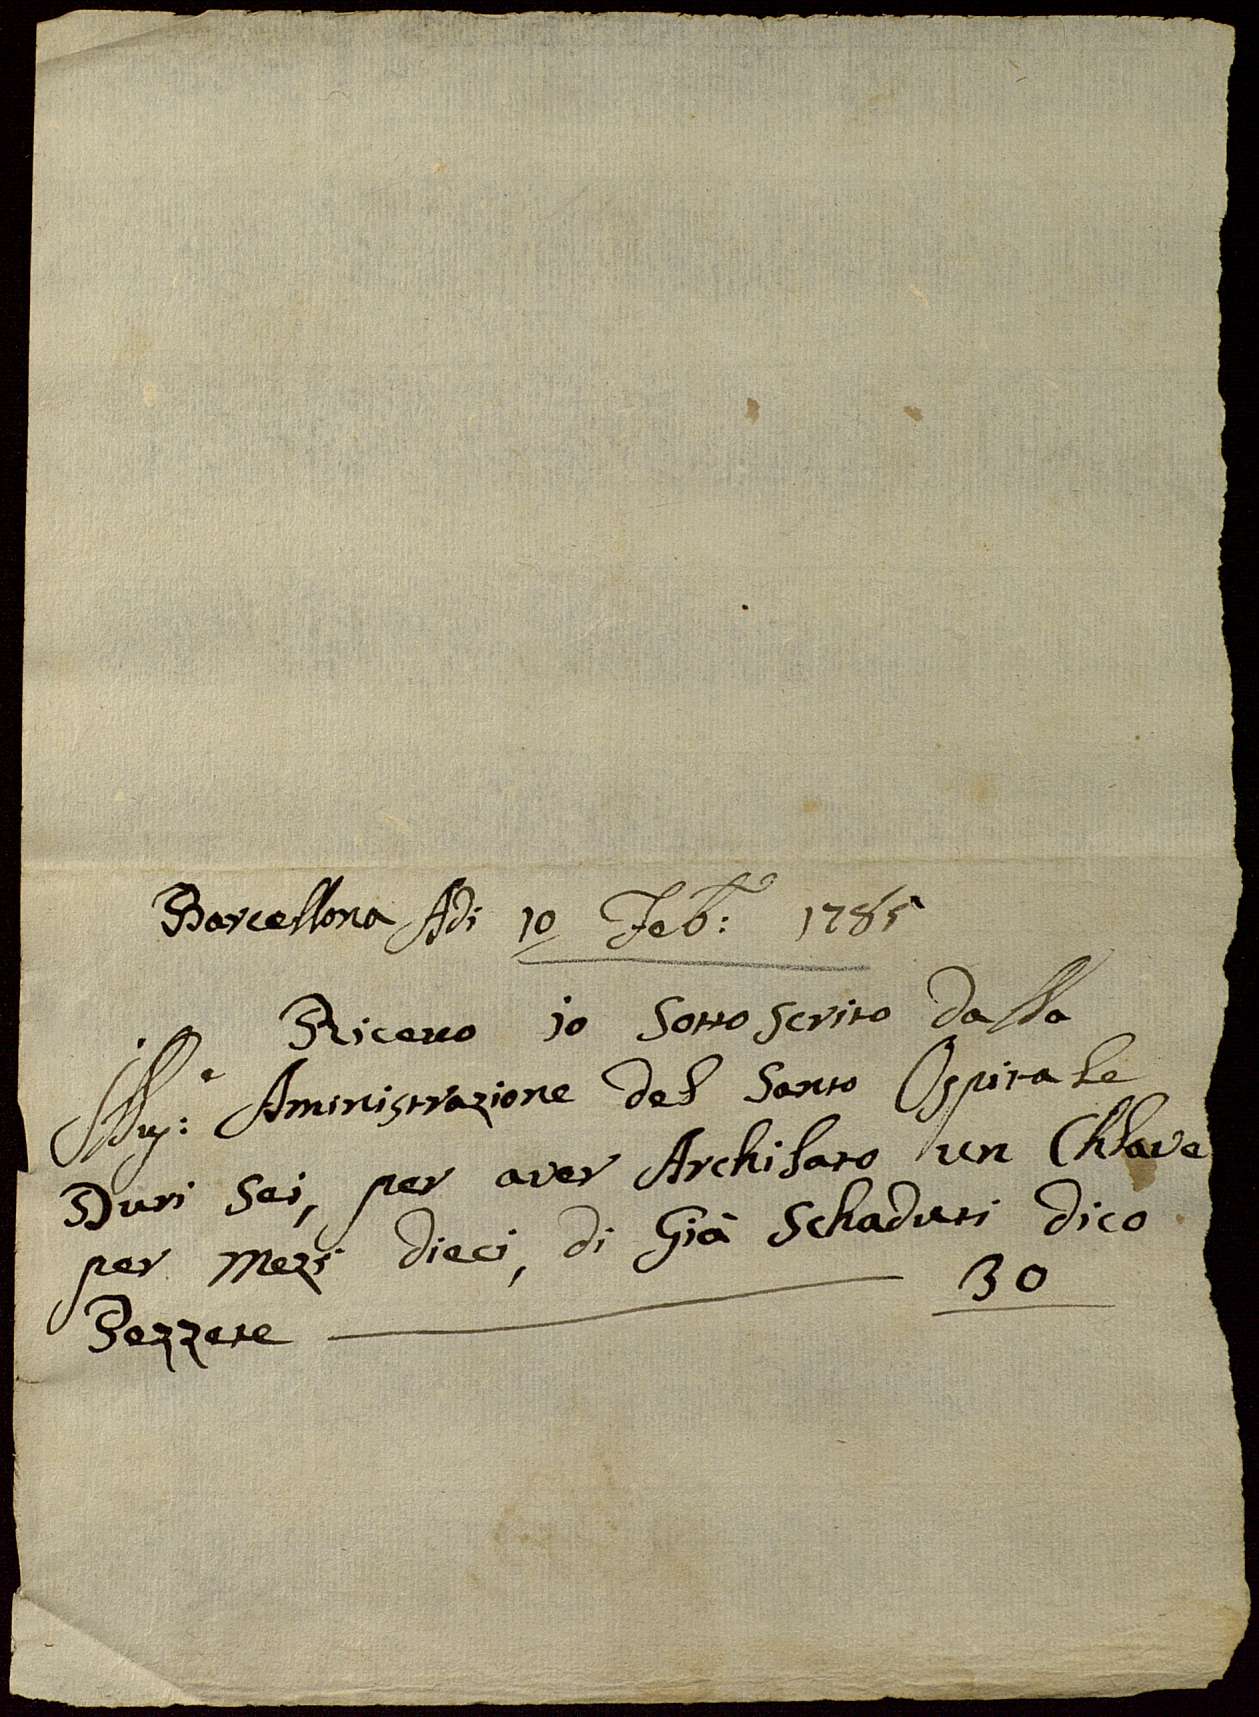 Barcellona Adi 10 Feb: 1785
Riceuo io Sotto Scrito dalla
Illu: Aministrazione del Santo Ospitale
Duri Sei, per aver Archilato un Chlave
per mezi dieci, di Già Schaduti dico
Pezzete 30